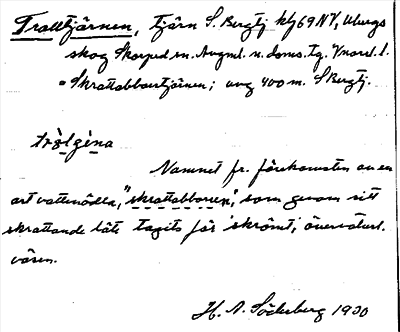 Tralltjärnen, tjärn S. Bergtj kbl 69 NV, Ubergs
skog Skorped sn. Ångml. n. doms. Tg. Vnorrl. l.
= Skrattabborrtjärnen; avg 400 m. S Bergtj.
tròl̥gèna
Namnet fr. förekomsten av en
art vattenödla, "skrattabborren", som genom sitt
skrattande läte tagits för 'skrömt', övernaturl.
väsen.
H. A. Söderberg 1930